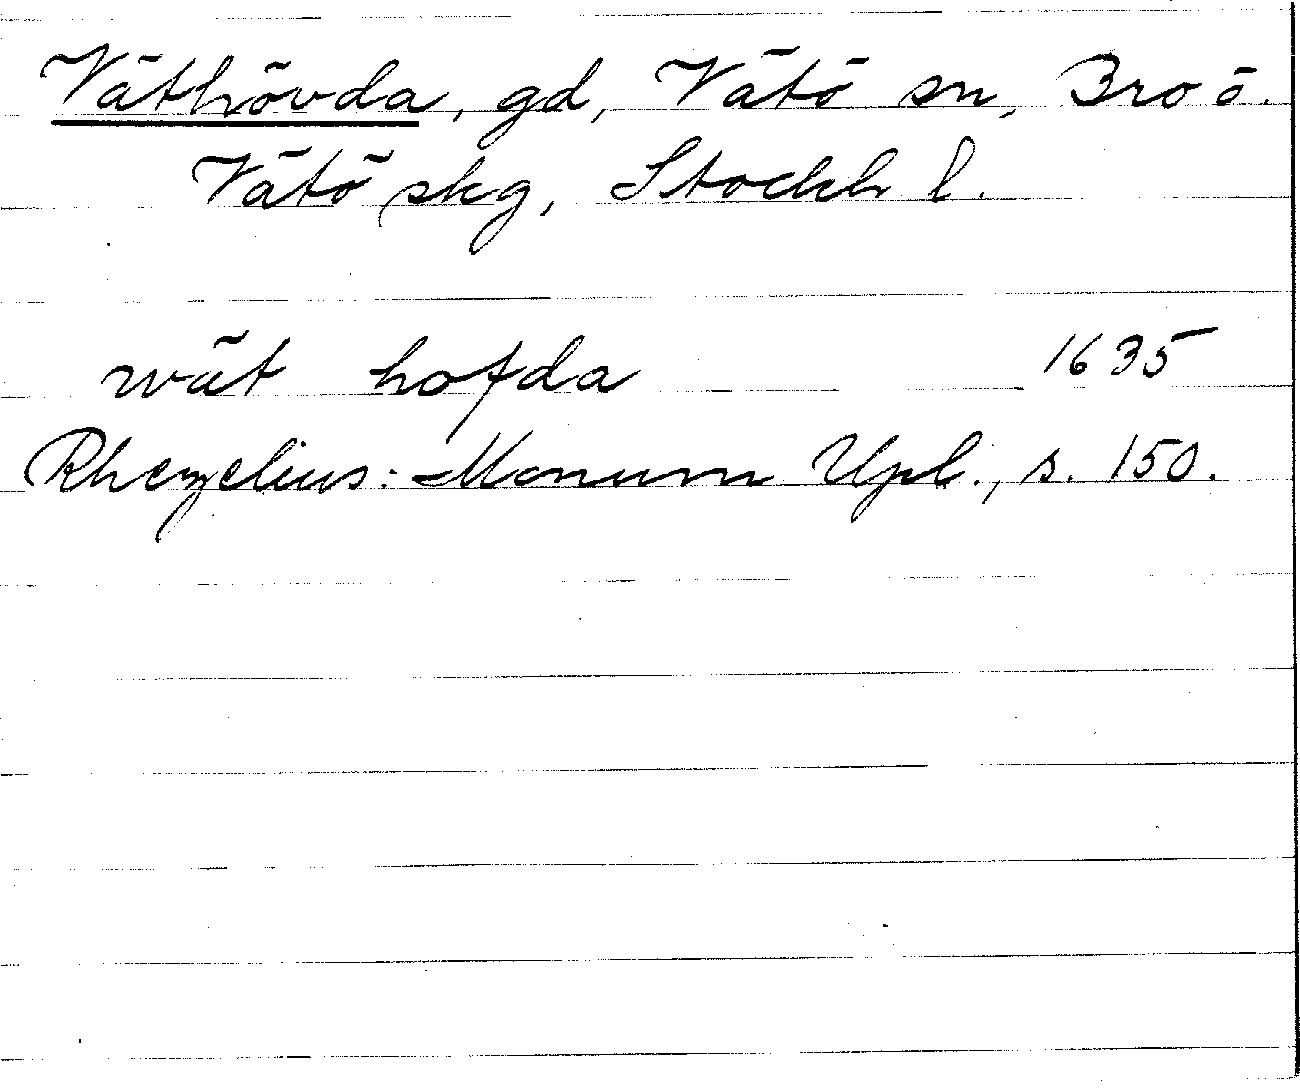 Väthövda, gd, Vätö sn, Bro ö.
Vätö skg, Stockh l.
wät hofda 1635
Rhezelius: Monum Upl., s. 150.